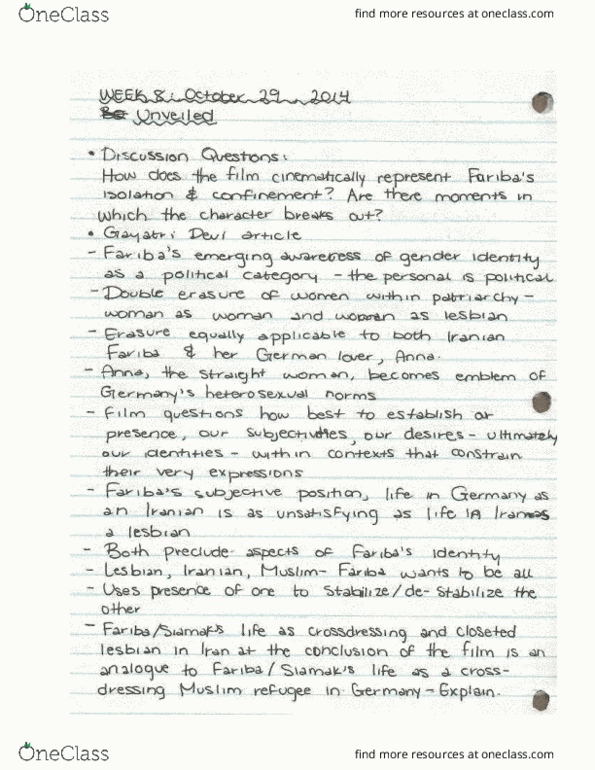 OneClass
find more resources at oneclass.com
WEEK 8: October 29, 2014
Unveiled
• Discussion Questions:
How does the film cinematically represent Fariba's
isolation & confinement? Are there moments in
which the character breaks out?
• Gayatri Devi article
- Fariba's emerging awareness of gender identity
as a political category - the personal is political
- Double erasure of women within patriarchy -
woman as woman and woman as lesbian
- Erasure equally applicable to both Iranian
Fariba & her German lover, Anne.
- Anne, the straight woman, becomes emblem of
Germany's heterosexual norms
- Film questions how best to establish or
presence, our subjectivities, our desires - ultimately
our identities - within contexts that constrain
their very expressions
- Fariba's subjective position, life in Germany as
an Iranian is as unsatisfying as life in Iran as
a lesbian
- Both preclude aspects of Fariba's identity
- Lesbian, Iranian, Muslim - Fariba wants to be all
- Uses presence of one to stabilize/de-stabilize the
other
- Fariba/Siamak's life as crossdressing and closeted
lesbian in Iran at the conclusion of the film is an
analogue to Fariba/Siamak's life as a cross-
dressing Muslim refugee in Germany - Explain.
OneClass
find more resources at oneclass.com